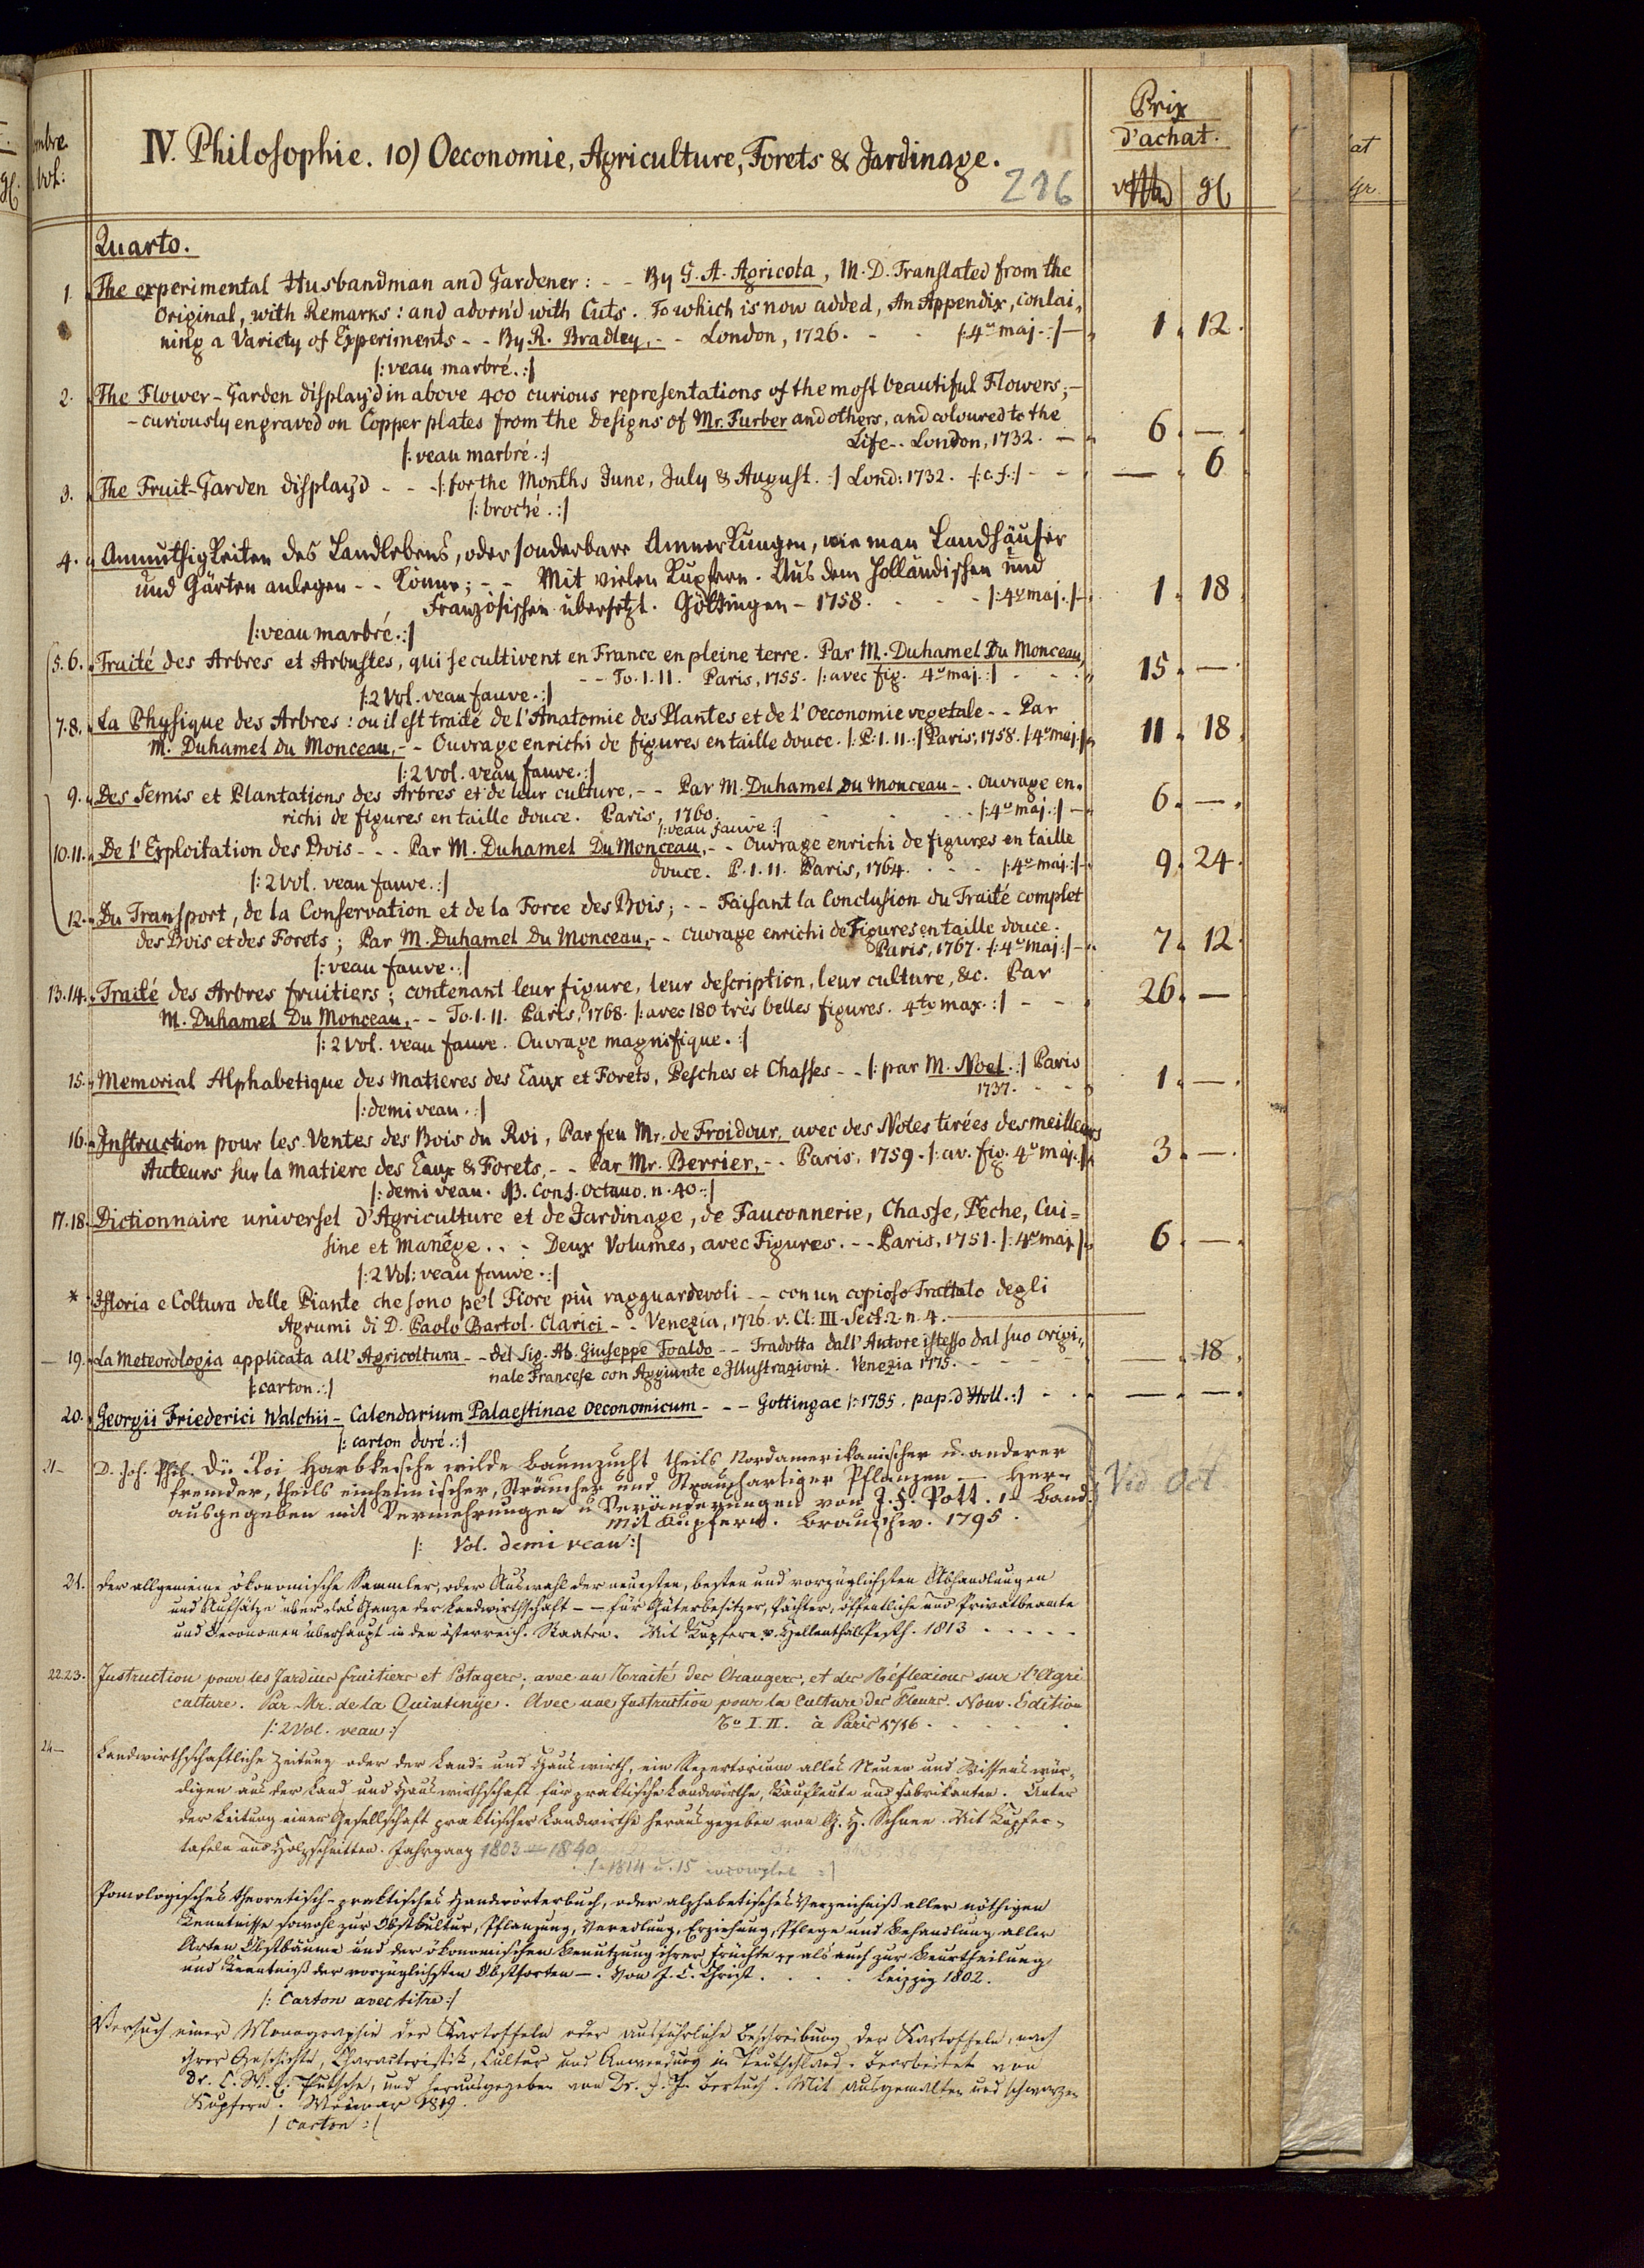 Prix
d'achat.
IV. Philosophie. 10) Oeconomie, Agriculture, Forets & Jardinage.
216
Quarto.
1. The experimental Husbandman and Gardener: - - By G. A. Agricola, M. D. Translated from the
Original, with Remarks: and adorn'd with Cuts. To which is now added, An Appendix, contai-
ning a Variety of Experiments - - By R. Bradley, - - London, 1726. - - |: 4º maj. :| 1. 12.
|: veau marbré. :|
2. The Flower-Garden display'd in above 400 curious representations of the most beautiful Flowers; -
- curiously engraved on Copper plates from the Designs of Mr. Furber and others, and coloured to the
Life - - London, 1732. - 6. —.
|: veau marbré. :|
3. The Fruit-Garden display'd - - - |: for the Months June, July & August. :| Lond: 1732. |: c. f. :| - - —. 6
|: broché. :|
4. Anmuthigkeiten des Landlebens, oder sonderbare Anmerkungen, wie man Landhäuser
und Gärten anlegen - - könne; - - Mit vielen Kupfern. Aus dem Holländischen und
Französischen übersetzt. Göttingen - 1758. - - - |: 4º maj. :| 1. 18.
|: veau marbré. :|
5. 6. Traité des Arbres et Arbustes, qui se cultivent en France en pleine terre. Par M. Duhamel Du Monceau,
- - To. I. II. Paris, 1755. |: avec fig. 4º maj. :| 15. —.
|: 2 Vol. veau fauve. :|
7. 8. La Physique des Arbres: ou il est traité de l'Anatomie des Plantes et de l'Oeconomie vegetale - - Par
M. Duhamel du Monceau, - - Ouvrage enrichi de figures en taille douce. |: P. I. II. :| Paris, 1758. |: 4º maj. :| 11. 18.
|: 2 vol. veau fauve. :|
9. Des Semis et Plantations des Arbres et de leur culture, - - Par M. Duhamel du Monceau - . Ouvrage en-
richi de figures en taille douce. Paris, 1760. |: 4º maj. :| 6. —.
|: veau fauve :|
10. 11. De l'Exploitation des Bois - - - Par M. Duhamel Du Monceau, - - Ouvrage enrichi de figures en taille
douce. P. I. II. Paris, 1764. - - - |: 4º maj. :| 9. 24.
|: 2 Vol. veau fauve. :|
12. Du Transport, de la Conservation et de la Force des Bois; - - Faisant la Conclusion du Traité complet
des Bois et des Forets; Par M. Duhamel Du Monceau, - - ouvrage enrichi de Figures en taille douce.
Paris, 1767. |: 4º maj. :| 7. 12.
|: veau fauve. :|
13. 14. Traité des Arbres fruitiers; contenant leur figure, leur description, leur culture, &c. Par
M. Duhamel Du Monceau, - - To. I. II. Paris, 1768. |: avec 180 très belles figures. 4to max. :| - - 26. —
|: 2 Vol. veau fauve. Ouvrage magnifique. :|
15. Memorial Alphabetique des matieres des Eaux et Forets, Pesches et Chasses - - |: par M. Noel. :| Paris
1737. - - 1. —.
|: demi veau. :|
16. Instruction pour les Ventes des Bois du Roi, Par feu Mr. de Froidour, avec des Notes tirées des meilleurs
Auteurs sur la matiere des Eaux & Forets, - - Par Mr. Berrier, - - Paris, 1759. |: av. fig. 4º maj. :| 3. —.
|: demi veau. NB. Conf. Octavo. n. 40. :|
17. 18. Dictionnaire universel d'Agriculture et de Jardinage, de Fauconnerie, Chasse, Pêche, Cui=
sine et Manége. . - Deux Volumes, avec Figures. - - Paris, 1751. |: 4º maj. :| 6. —.
|: 2 Vol: veau fauve. :|
* Istoria e Coltura delle Piante che sono pe'l Fiore più ragguardevoli - - con un copioso Trattato degli
Agrumi di D. Paolo Bartol. Clarici - - Venezia, 1726. v. Cl: III. Sect: 2. n. 4.
19. La Meteorologia applicata all'Agricoltura - - del Sig. Ab. Giuseppe Toaldo - - Tradotta dall'Autore istesso dal suo origi-
nale Francese con Aggiunte e Illustrazioni. Venezia 1775. - - - —. 18.
|: carton. :|
20. Georgii Friederici Walchii - Calendarium Palaestinae Oeconomicum - - - Gottingae |: 1785. pap. d'Holl. :| - —. —.
|: carton doré. :|
21- D. Joh. Phil. Dü Roi Harbkesche wilde Baumzucht theils Nordamerikanischer u. anderer
fremder, theils einheimischer, Sträucher und Strauchartiger Pflanzen — Her-
ausgegeben mit Vermehrungen u Veränderungen von J. F. Pott. 1r Band.
Mit Kupfern. Braunschw. 1795.
Vid Oct.
|: Vol. demi veau :|
21. Der allgemeine ökonomische Sammler, oder Auswahl der neuesten, besten und vorzüglichsten Abhandlungen
und Aufsätze über das Ganze der Landwirthschaft - - für Güterbesitzer, Pächter, öffentliche und Privatbeamte
und Oekonomen überhaupt in den österreich. Staaten. Mit Kupfern. Pesth. 1813 . . . . .
22. 23. Instruction pour les Jardins fruitiers et Potagers; avec un Traité des Orangers, et des Réflexions sur l'Agri
culture. Par Mr. de la Quintinÿe. Avec une Instruction pour la Culture des Fleurs. Nouv. Edition
To I. II. à Paris 1716. . . . .
|: 2 Vol. veau :|
24- Landwirthschaftliche Zeitung oder der Land- und Hauswirth, ein Repertorium alles Neuen und Wissenswür-
digen aus der Land und Hauswirthschaft für praktische Landwirthe, Kaufleute und Fabrikanten. Unter
der Leitung einer Gesellschaft praktischer Landwirthe herausgegeben von G. H. Schnee. Mit Kupfer-
tafeln und Holzschnitten. Jahrgang 1803 - 1840
|: 1814 u. 15 incomplet :|
Pomologisches theoretisch-praktisches Handwörterbuch, oder alphabetisches Verzeichniß aller nöthigen
Kenntnisse sowohl zur Obstkultur, Pflanzung, Veredlung, Erziehung, Pflege und Behandlung aller
Arten Obstbäume und der ökonomischen Benutzung ihrer Früchte als auch zur Beurtheilung
und Kenntniß der vorzüglichsten Obstsorten -. Von J. L. Christ. . . . . Leipzig 1802.
|: Carton avec titre :|
Versuch einer Monographie der Kartoffeln oder ausführliche Beschreibung der Kartoffeln, nach
ihrer Geschichte, Characteristik, Cultur und Anwendung in Teutschland. Bearbeitet von
Dr. C. W. E. Putsche, und herausgegeben von Dr. F. J. Bertuch. Mit ausgemalten und schwarzen
Kupfern. Weimar 1819.
| carton :|